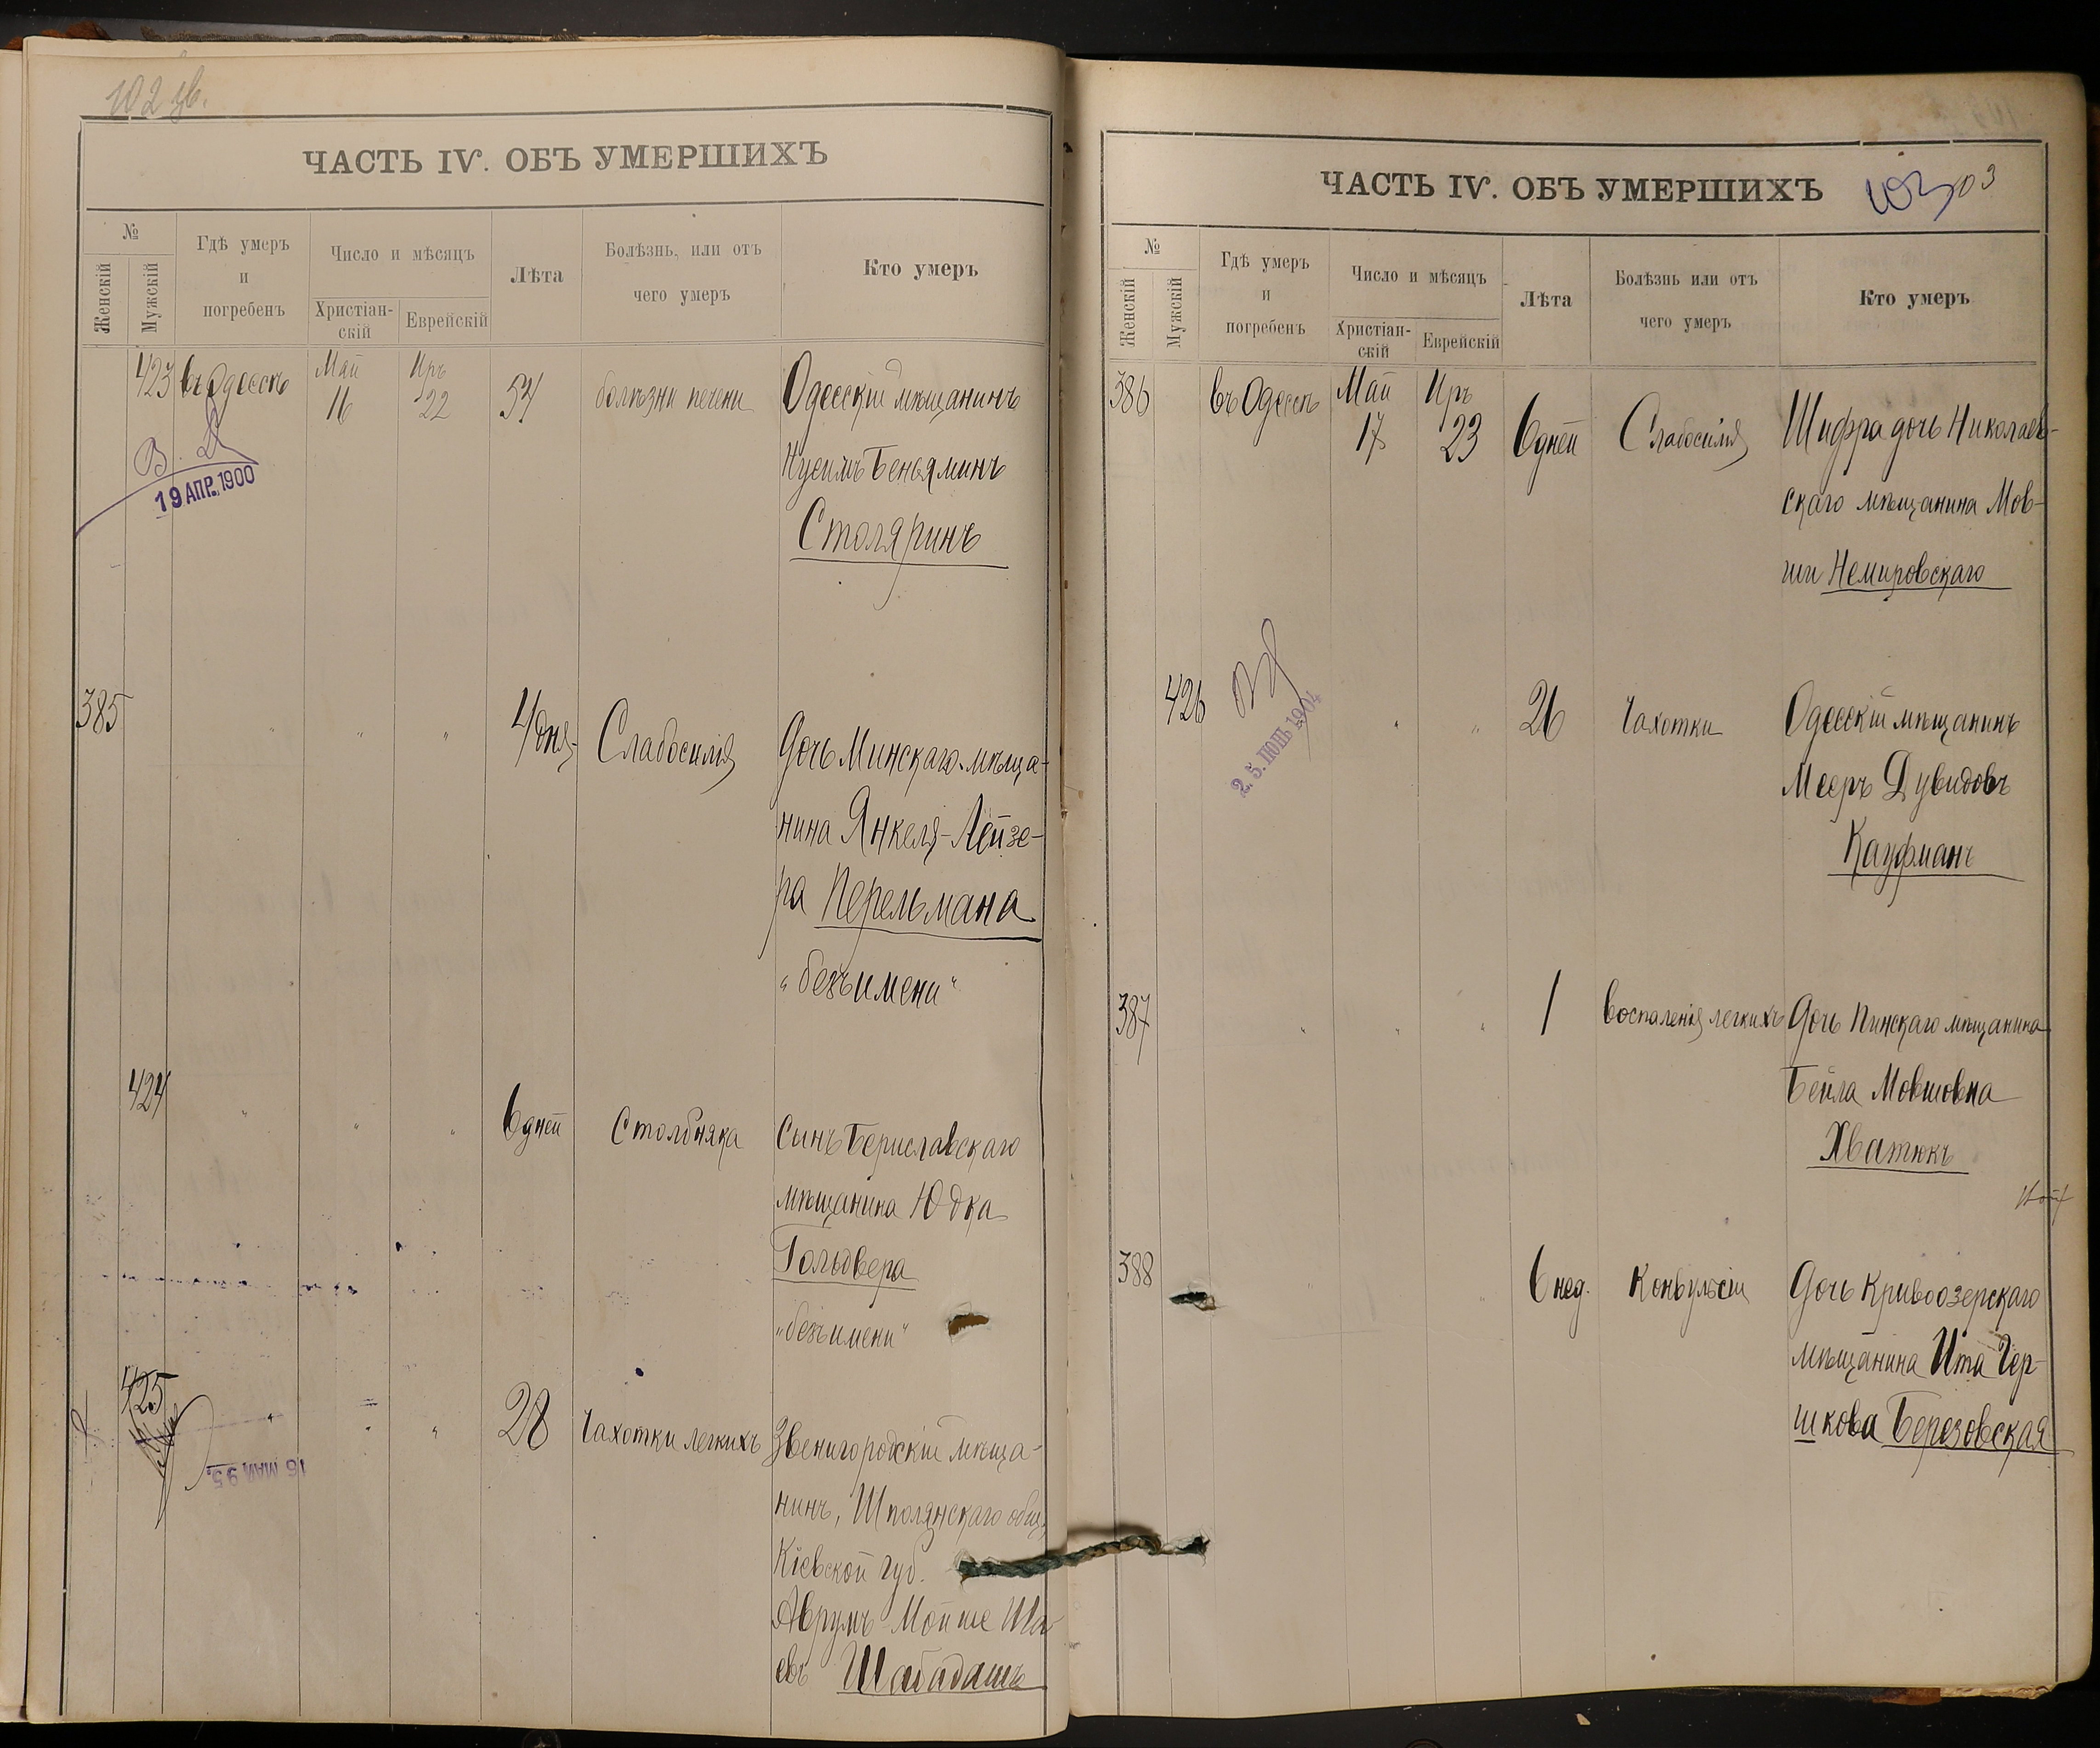 102 зв.
ЧАСТЬ IV. ОБЪ УМЕРШИХЪ
№
Женскій
Мужскій
Гдѣ умеръ
и
погребенъ
Число и мѣсяцъ
Христіан-
скій
Еврейскій
Лѣта
Болѣзнь, или отъ
чего умеръ
Кто умеръ
423 въ Одессѣ Май 16 Иръ 22 54 болѣзни печени Одесскій мѣщанинъ
Нусимъ Беньяминъ
Столяринъ
19 АПР. 1900
385 " " " 4 дня Слабосилія Дочь Минскаго мѣща-
нина Янкеля-Лейзе-
ра Перельмана
"безъ имени"
424 " " " 6 дней Столбняка Сынъ Бериславскаго
мѣщанина Юдка
Гольдвера
"безъ имени"
425 " " " 28 Чахотки легкихъ Звенигородскій мѣща-
нинъ, Шполянскаго общ.
Кіевской губ.
Аврумъ Мойше Ша-
евъ Шабадашъ
16 МАЯ 95
ЧАСТЬ IV. ОБЪ УМЕРШИХЪ
103 103
№
Женскій
Мужскій
Гдѣ умеръ
и
погребенъ
Число и мѣсяцъ
Христіан-
скій
Еврейскій
Лѣта
Болѣзнь или отъ
чего умеръ
Кто умеръ
386 въ Одессѣ Май 17 Иръ 23 6 дней Слабосилія Шифра дочь Николаев-
скаго мѣщанина Мов-
ши Немировскаго
426 " " 26 Чахотки Одесскій мѣщанинъ
Мееръ Дувидовъ
Кауфманъ
2.5. 1904
387 " " " 1 Воспаленія легкихъ Дочь Пинскаго мѣщанина
Бейла Мовшовна
Хватюкъ
388 " " 6 нед. Конвульсіи Дочь Кривоозерскаго
мѣщанина Ита Гер-
шкова Березовская